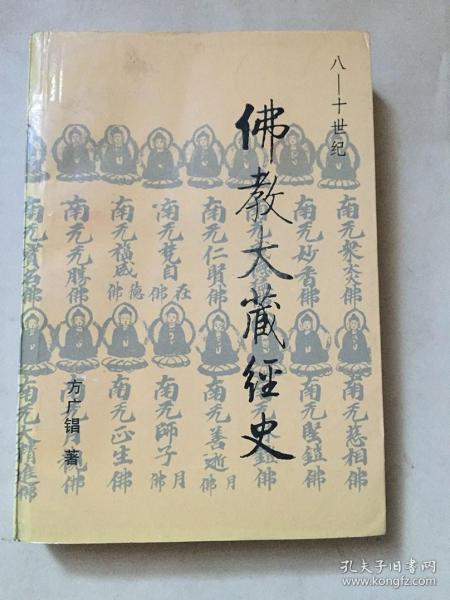 八—十世纪
佛教大藏經史
方广锠 著
南无眾大佛
南无妙香佛
南无仁賢佛
南无梵自
在佛
南无福威
德佛
南无元勝佛
南无寶名佛
南无慈相佛
南无堅鎧佛
南无善逝
月佛
南无師子
月佛
南无正生佛
南无大精進佛
孔夫子旧书网
www.kongfz.com